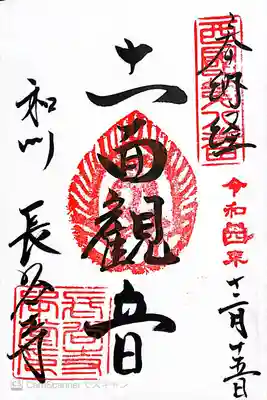 奉納経
令和四年
十二月十五日
十一面観音
和州
長谷寺
CamScanner でスキャン